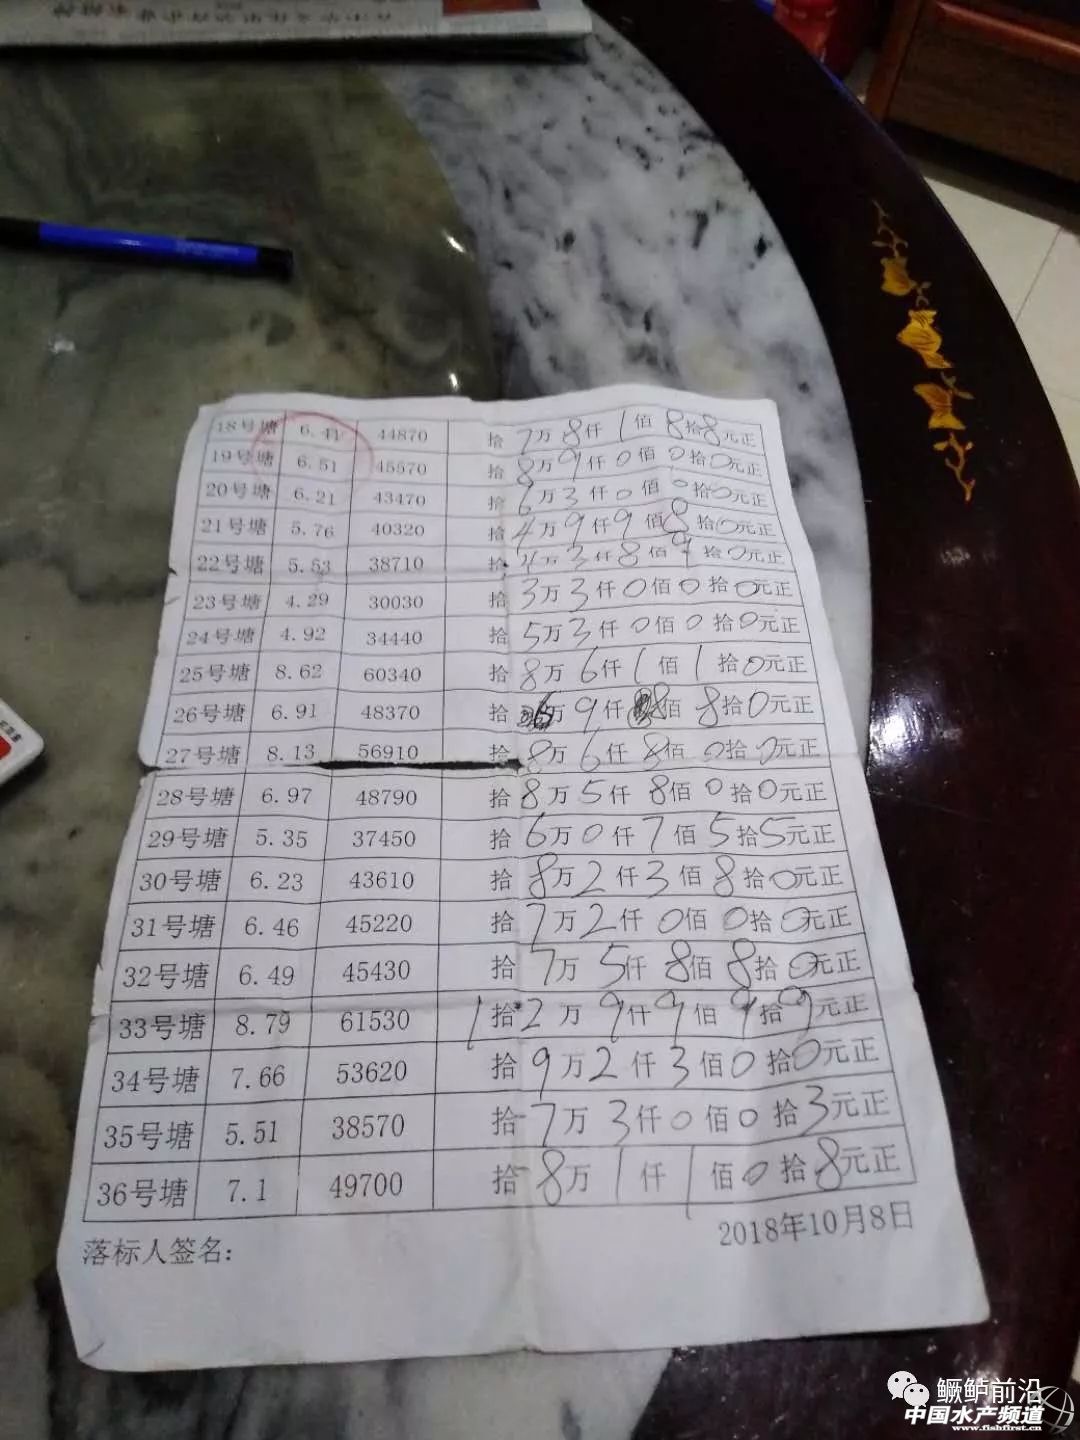 18号塘 6.41 44870 拾7万8仟1佰8拾8元正
19号塘 6.51 45570 拾8万9仟0佰0拾0元正
20号塘 6.21 43470 拾6万3仟0佰0拾0元正
21号塘 5.76 40320 拾4万9仟9佰8拾0元正
22号塘 5.53 38710 拾4万3仟8佰9拾0元正
23号塘 4.29 30030 拾3万3仟0佰0拾0元正
24号塘 4.92 34440 拾5万3仟0佰0拾0元正
25号塘 8.62 60340 拾8万6仟1佰1拾0元正
26号塘 6.91 48370 拾6万9仟8佰8拾0元正
27号塘 8.13 56910 拾8万6仟8佰0拾0元正
28号塘 6.97 48790 拾8万5仟8佰0拾0元正
29号塘 5.35 37450 拾6万0仟7佰5拾5元正
30号塘 6.23 43610 拾8万2仟3佰8拾0元正
31号塘 6.46 45220 拾7万2仟0佰0拾0元正
32号塘 6.49 45430 拾7万5仟8佰8拾0元正
33号塘 8.79 61530 1拾2万9仟9佰9拾9元正
34号塘 7.66 53620 拾9万2仟3佰0拾0元正
35号塘 5.51 38570 拾7万3仟0佰0拾3元正
36号塘 7.1 49700 拾8万1仟1佰0拾8元正
落标人签名:
2018年10月8日
鳜鲈前沿
中国水产频道
www.fishfirst.cn